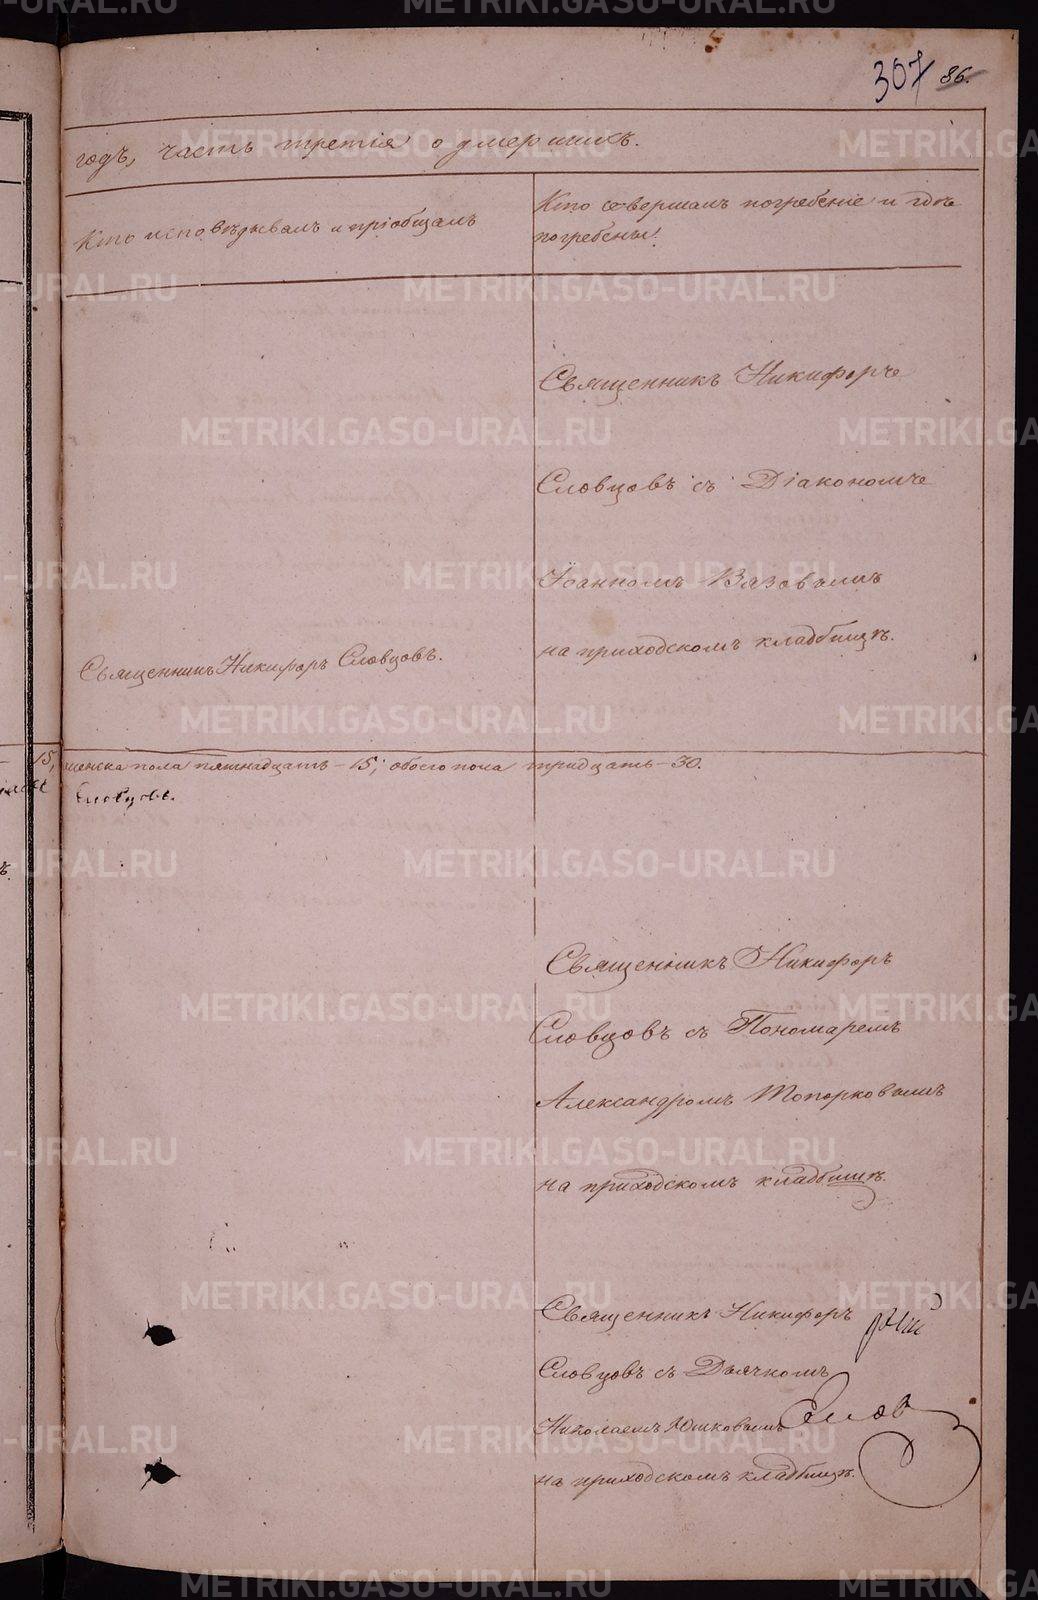 307 86.
годъ, часть третія о умершихъ.
Кто исповѣдывалъ и пріобщалъ
Кто совершалъ погребеніе и гдѣ
погребены!
Священникъ Никифоръ
Словцовъ съ Діакономъ
Іоанномъ Вязовымъ
на приходскомъ кладбищѣ.
Священникъ Никифоръ Словцовъ.
15, женска пола пятнадцать – 15; обоего пола тридцать – 30.
Словцовъ.
Священникъ Никифоръ
Словцовъ съ Пономаремъ
Александромъ Топорковымъ
на приходскомъ кладбищѣ.
Священникъ Никифоръ
Словцовъ съ Дьячкомъ
Николаемъ Юшковымъ
на приходскомъ кладбищѣ.
METRIKI.GASO-URAL.RU